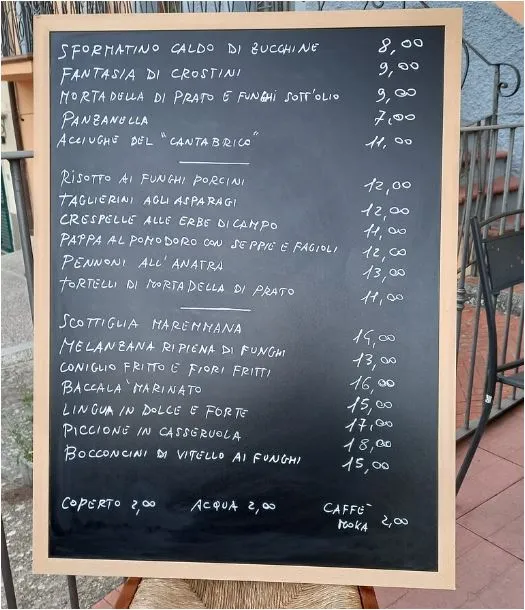 SFORMATINO CALDO DI ZUCCHINE 8,00
FANTASIA DI CROSTINI 9,00
MORTADELLA DI PRATO E FUNGHI SOTT'OLIO 9,00
PANZANELLA 7,00
ACCIUGHE DEL "CANTABRICO" 11,00
RISOTTO AI FUNGHI PORCINI 12,00
TAGLIERINI AGLI ASPARAGI 12,00
CRESPELLE ALLE ERBE DI CAMPO 11,00
PAPPA AL POMODORO CON SEPPIE E FAGIOLI 12,00
PENNONI ALL'ANATRA 13,00
TORTELLI DI MORTADELLA DI PRATO 11,00
SCOTTIGLIA MAREMMANA 14,00
MELANZANA RIPIENA DI FUNGHI 13,00
CONIGLIO FRITTO E FIORI FRITTI 16,00
BACCALA' MARINATO 15,00
LINGUA IN DOLCE E FORTE 17,00
PICCIONE IN CASSERUOLA 18,00
BOCCONCINI DI VITELLO AI FUNGHI 15,00
COPERTO 2,00 ACQUA 2,00 CAFFE'
MOKA 2,00